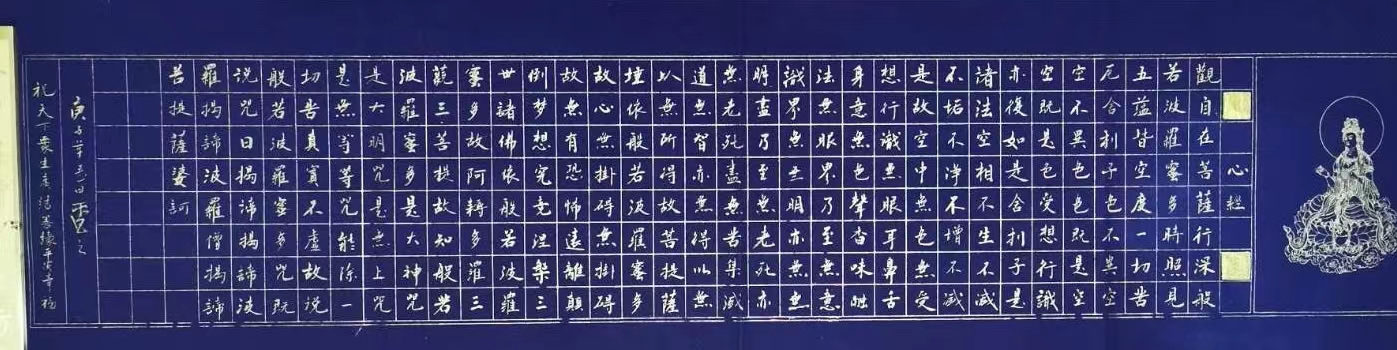 心經
觀自在菩薩行深般
若波羅蜜多時照見
五蘊皆空度一切苦
厄舍利子色不異空
空不異色色既是空
空既是色受想行識
亦復如是舍利子是
諸法空相不生不滅
不垢不淨不增不減
是故空中無色無受
想行識無眼耳鼻舌
身意無色聲香味触
法無眼界乃至無意
識界無無明亦無無
明盡乃至無老死亦
無老死盡無苦集滅
道無智亦無得以無
以無所得故菩提薩
埵依般若波羅蜜多
故心無掛碍無掛碍
故無有恐怖遠離顛
倒梦想究竟涅槃三
世諸佛依般若波羅
蜜多故阿耨多羅三
藐三菩提故知般若
波羅蜜多是大神咒
是大明咒是無上咒
是無等等咒能除一
切苦真實不虛故説
般若波羅蜜多咒既
説咒曰揭諦揭諦波
羅揭諦波羅僧揭諦
菩提薩婆訶
庚子年日
祝天下衆生廣結善緣平安幸福